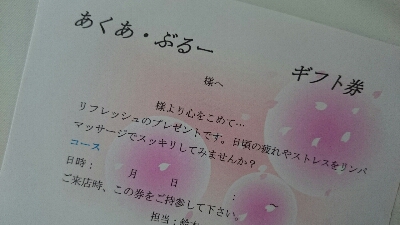 あくあ・ぶるー
ギフト券
様へ
様より心をこめて…
リフレッシュのプレゼントです。日頃の疲れやストレスをリンパ
マッサージでスッキリしてみませんか？
コース
日時： 月 日 : ～
ご来店時、この券をご持参して下さい。
担当：鈴木